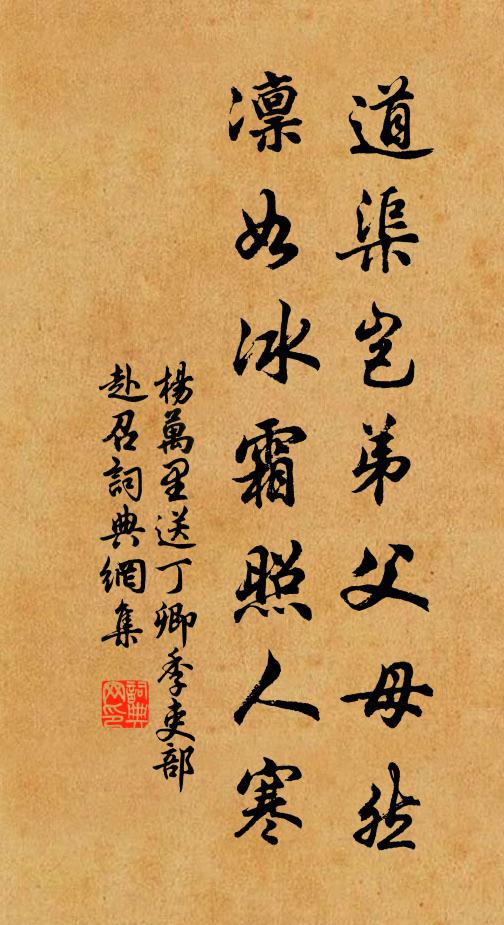 道渠岂弟父母然
凛如冰霜照人寒
楊萬里送丁卿季吏部
赴召詞典網集
詞典网印